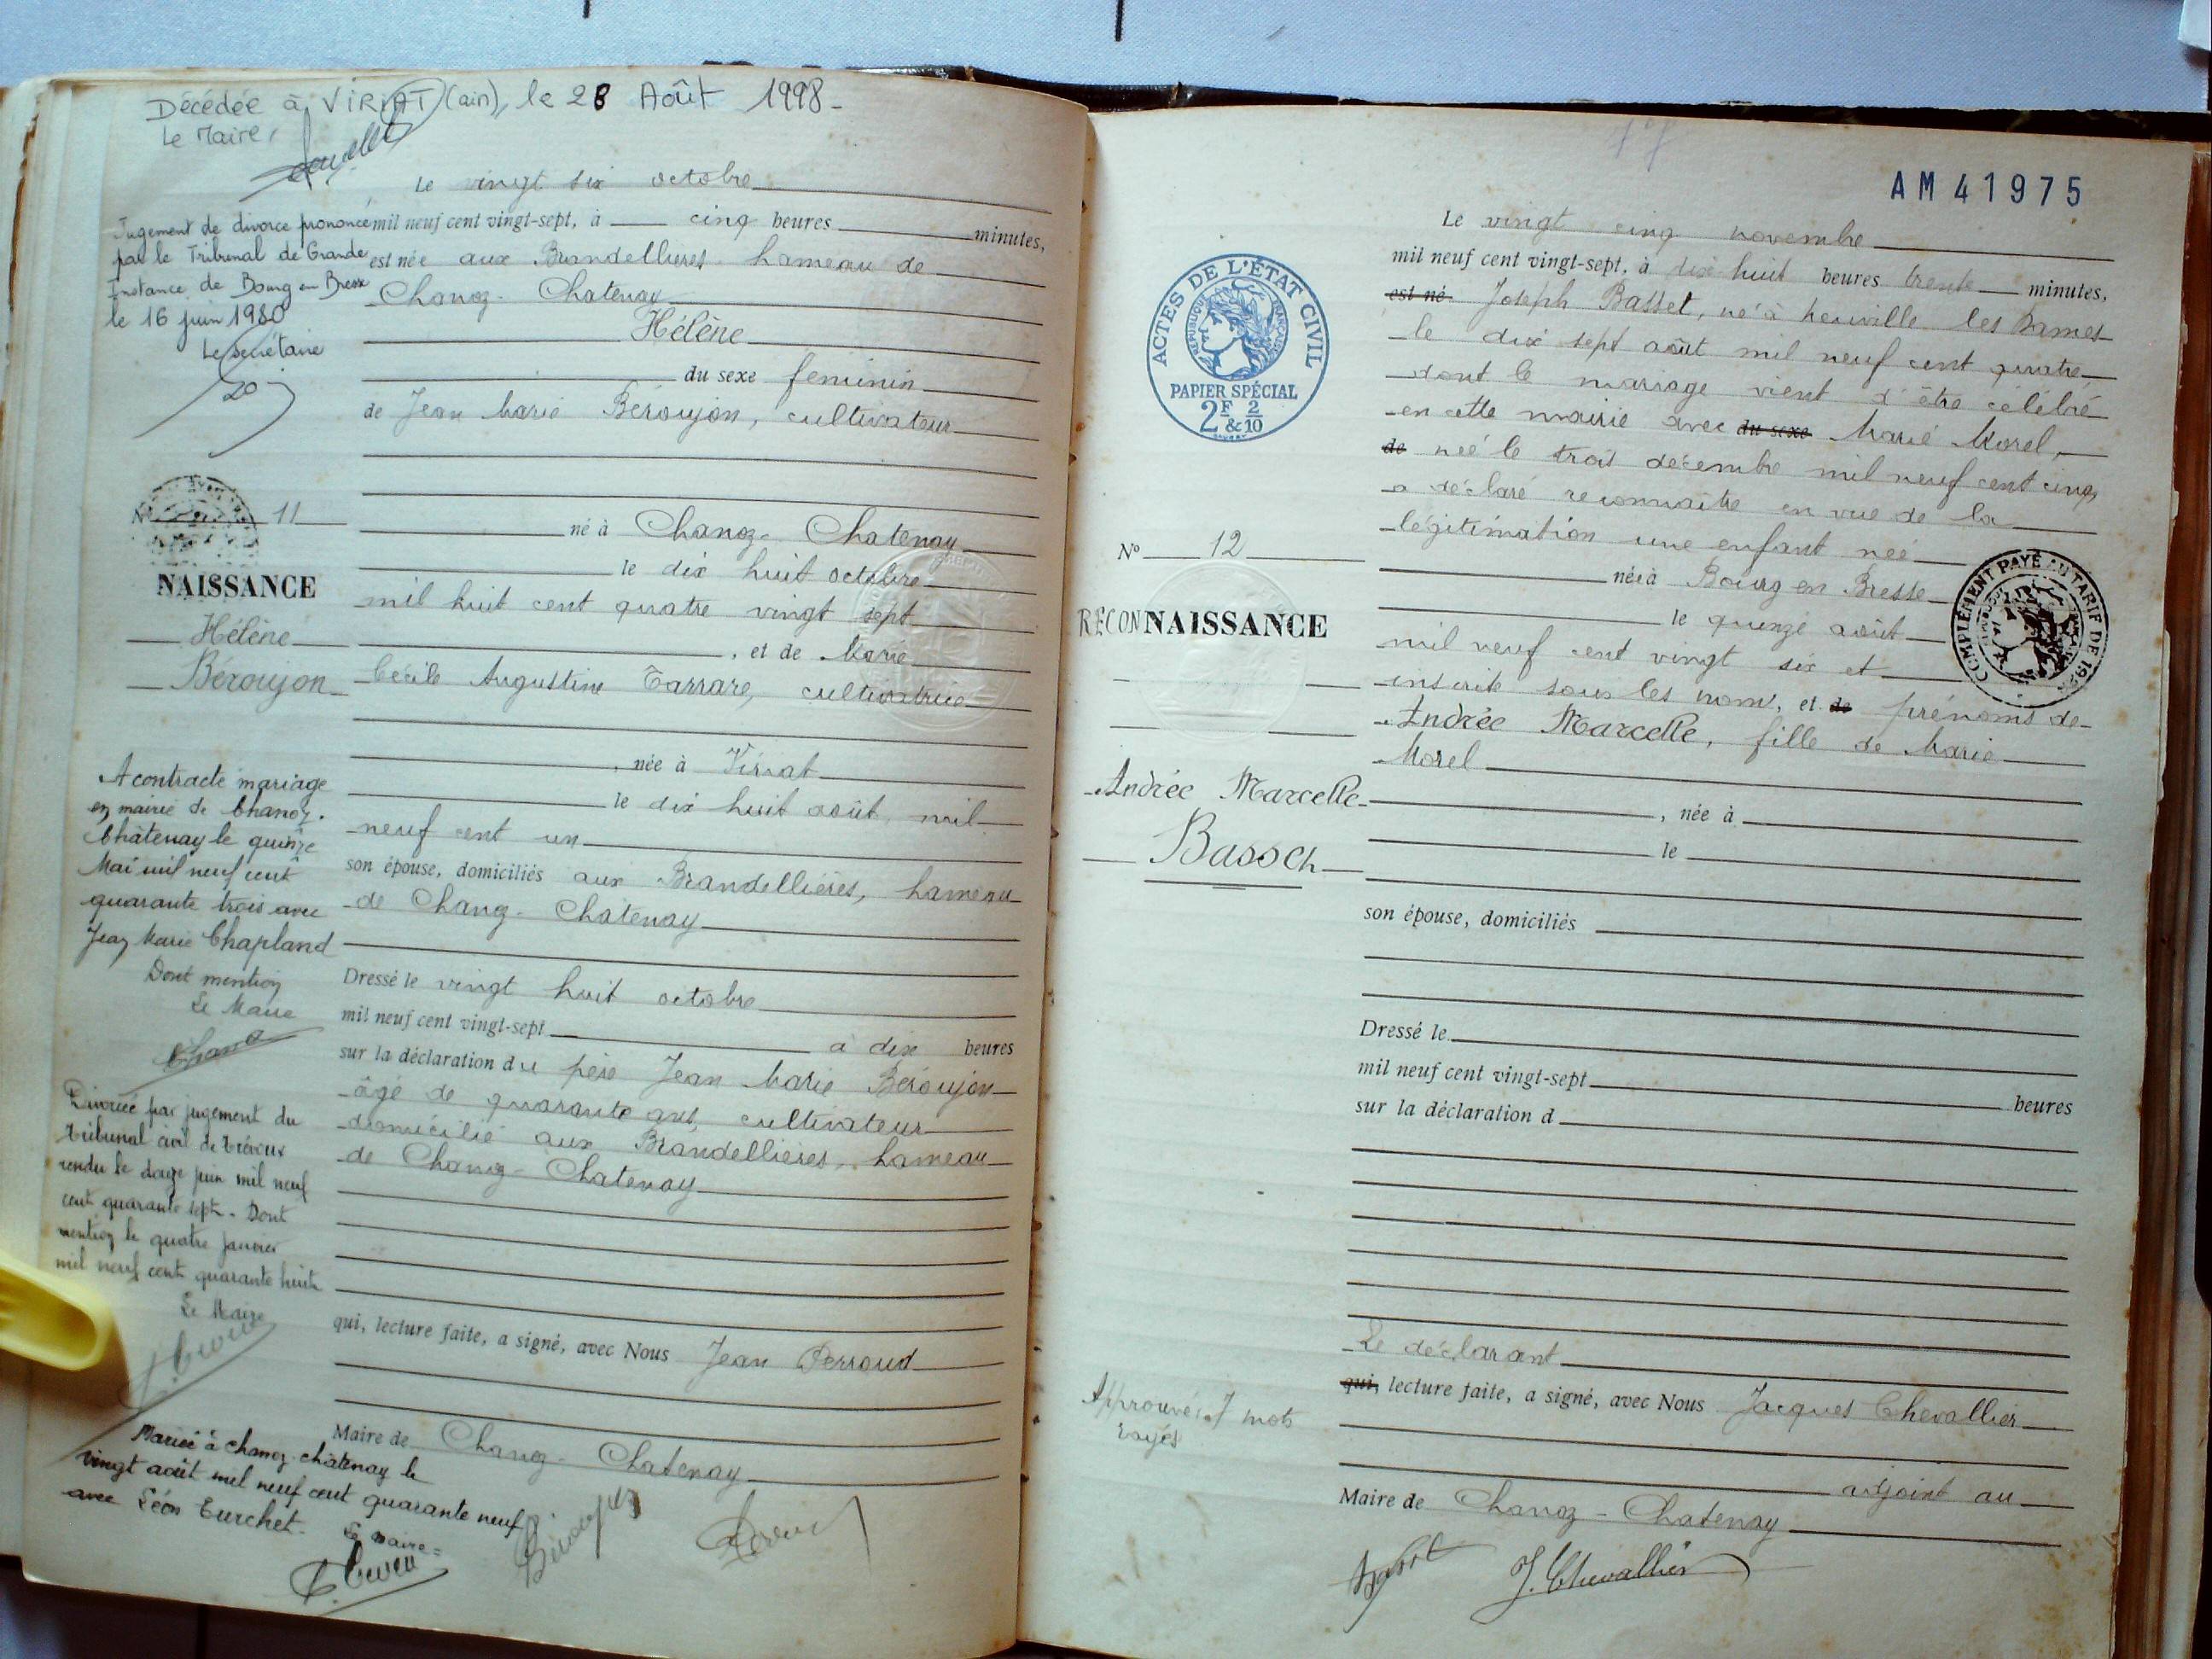 Décédée à VIRIAT (ain), le 28 Août 1998-
Le Maire,
Le vingt six octobre
mil neuf cent vingt-sept, à cinq heures minutes,
est née aux Brandellières hameau de
Chanoz-Chatenay
Hélène
du sexe féminin
de Jean Marie Béroujon, cultivateur
né à Chanoz-Chatenay
le dix huit octobre
mil huit cent quatre vingt sept
, et de Marie
Cécile Augustine Tarrare, cultivatrice
, née à Viriat
le dix huit août mil
neuf cent un
son épouse, domiciliés aux Brandellières, hameau
de Chanoz-Chatenay
Dressé le vingt huit octobre
mil neuf cent vingt-sept à dix heures
sur la déclaration du père Jean Marie Béroujon
âgé de quarante ans, cultivateur
domicilié aux Brandellières, hameau
de Chanoz-Chatenay
qui, lecture faite, a signé, avec Nous Jean Perroud
Maire de Chanoz-Chatenay
Jugement de divorce prononcé
par le Tribunal de Grande
Instance de Bourg en Bresse
le 16 juin 1980
Le secrétaire
No 11
NAISSANCE
Hélène
Béroujon
A contracté mariage
en mairie de Chanoz-
Châtenay le quinze
Mai mil neuf cent
quarante trois avec
Jean Marie Chapland
Dont mention
Le Maire
Divorcée par jugement du
tribunal civil de Trévoux
rendu le douze juin mil neuf
cent quarante sept. Dont
mention le quatre janvier
mil neuf cent quarante huit
Le Maire
Mariée à Chanoz-châtenay le
vingt août mil neuf cent quarante neuf
avec Léon Turchet.
Le Maire =
AM 41975
ACTES DE L'ÉTAT CIVIL
RÉPUBLIQUE FRANÇAISE
PAPIER SPÉCIAL
2F & 2/10
Le vingt cinq novembre
mil neuf cent vingt-sept, à dix huit heures trente minutes,
est né Joseph Basset, né à Neuville les Dames
le dix sept août mil neuf cent quatre
dont le mariage vient d'être célébré
en cette mairie avec du sexe Marie Morel,
de née le trois décembre mil neuf cent cinq,
a déclaré reconnaître en vue de la
légitimation une enfant née
née à Bourg en Bresse
le quinze août
mil neuf cent vingt six et
inscrite sous les noms, et de prénoms de
Andrée Marcelle, fille de Marie
Morel
, née à
le
son épouse, domiciliés
Dressé le
mil neuf cent vingt-sept heures
sur la déclaration d
Le déclarant
qui, lecture faite, a signé, avec Nous Jacques Chevallier
adjoint au
Maire de Chanoz-Chatenay
J. Chevallier
No 12
RECONNAISSANCE
Andrée Marcelle
Basset
COMPLÉMENT PAYÉ AU TARIF DE
Approuvé: 7 mots
rayés